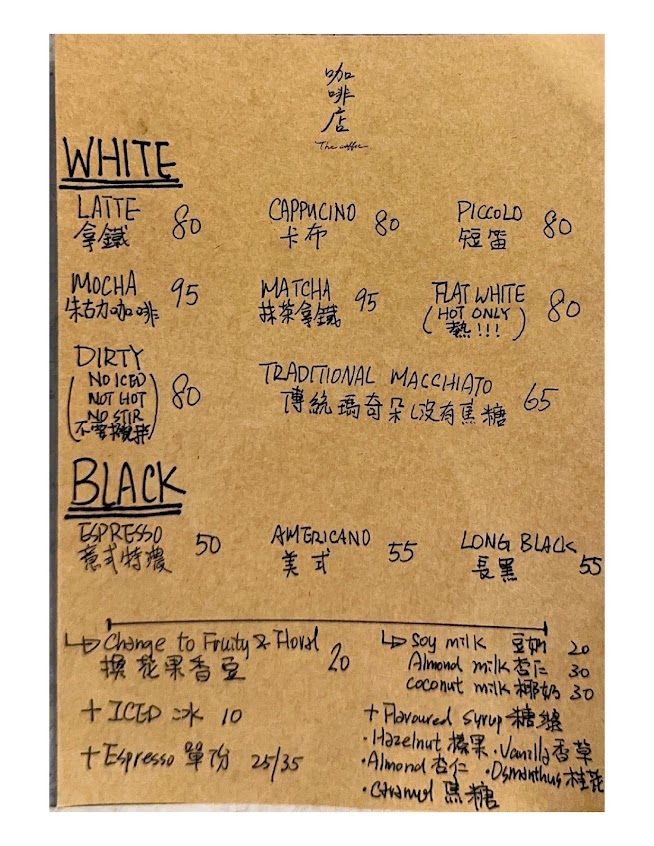 咖啡店
The coffee
WHITE
LATTE 80
拿鐵
CAPPUCINO 80
卡布
PICCOLO 80
短笛
MOCHA 95
朱古力咖啡
MATCHA 95
抹茶拿鐵
FLAT WHITE 80
(HOT ONLY
熱!!!)
DIRTY 80
(NO ICED
NOT HOT
NO STIR
不要攪拌)
TRADITIONAL MACCHIATO 65
傳統瑪奇朵(沒有焦糖
BLACK
ESPRESSO 50
意式特濃
AMERICANO 55
美式
LONG BLACK 55
長黑
↳ Change to Fruity & Floral 20
換花果香豆
+ ICED 冰 10
+ Espresso 單份 25/35
↳ Soy milk 豆奶 20
Almond milk 杏仁 30
coconut milk 椰奶 30
+ Flavoured syrup 糖漿
· Hazelnut 榛果 · Vanilla 香草
· Almond 杏仁 · Osmanthus 桂花
· Caramel 焦糖